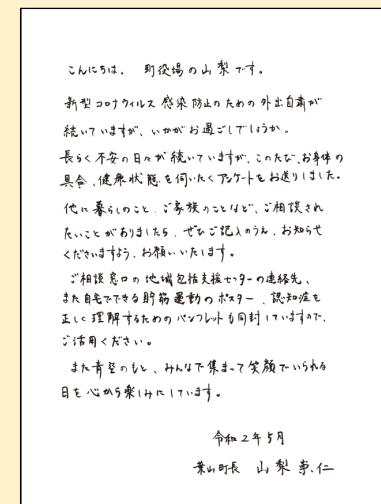 こんにちは。 町役場の山梨です。
新型コロナウイルス感染防止のための外出自粛が
続いていますが、いかがお過ごしでしょうか。
長らく不安の日々が続いていますが、このたび、お身体の
具合、健康状態を伺いたくアンケートをお送りしました。
他に暮らしのこと、ご家族のことなど、ご相談され
たいことがありましたら、ぜひご記入のうえ、お知らせ
くださいますよう、お願いいたします。
ご相談窓口の地域包括支援センターの連絡先、
また自宅でできる貯筋運動のポスター、認知症を
正しく理解するためのパンフレットも同封していますので、
ご活用ください。
また青空のもと、みんなで集まって笑顔でいられる
日を心から楽しみにしています。
令和2年5月
葉山町長 山梨崇仁